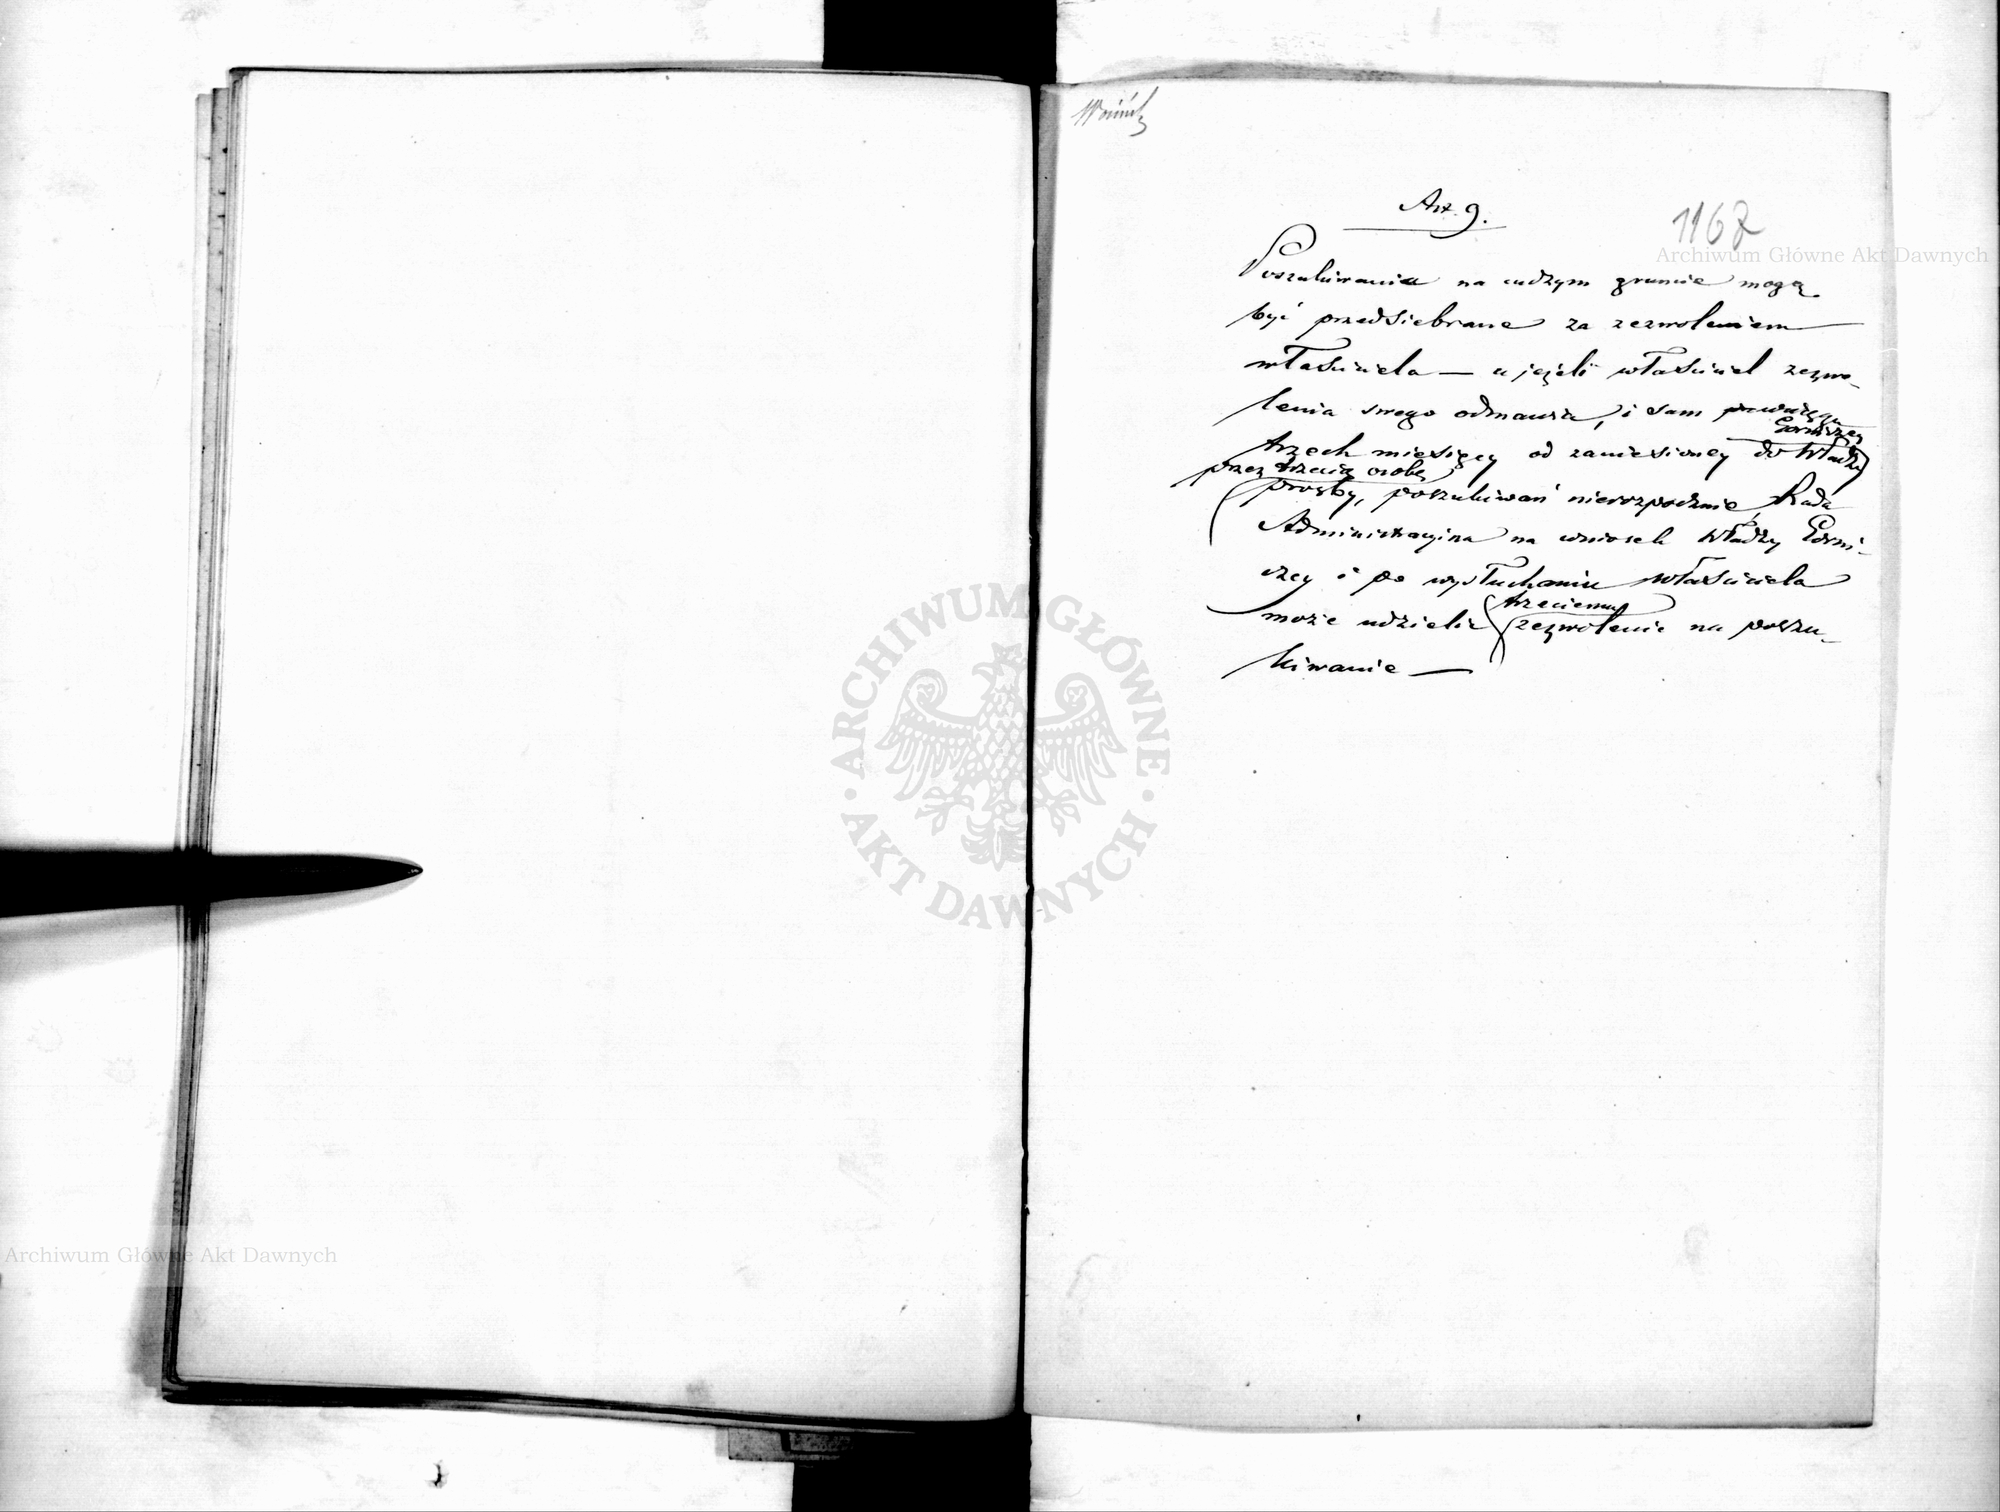 Art 9.
1167
Poszukiwania na cudzym gruncie mogą
być przedsiebrane za zezwoleniem
właściciela — a jeżeli właściciel zezwo-
lenia swego odmawia, i sam
Górniczey
trzech miesięcy od zaniesioney do Władzy
przez trzecią osobę
prośby, poszukiwań nierozpocznie, Rada
Administracyina na wniosek Władzy Górni-
czey i po wysłuchaniu właściciela
trzeciemu
może udzielić zezwolenie na poszu-
kiwanie —
Archiwum Główne Akt Dawnych
ARCHIWUM GŁÓWNE AKT DAWNYCH
Archiwum Główne Akt Dawnych